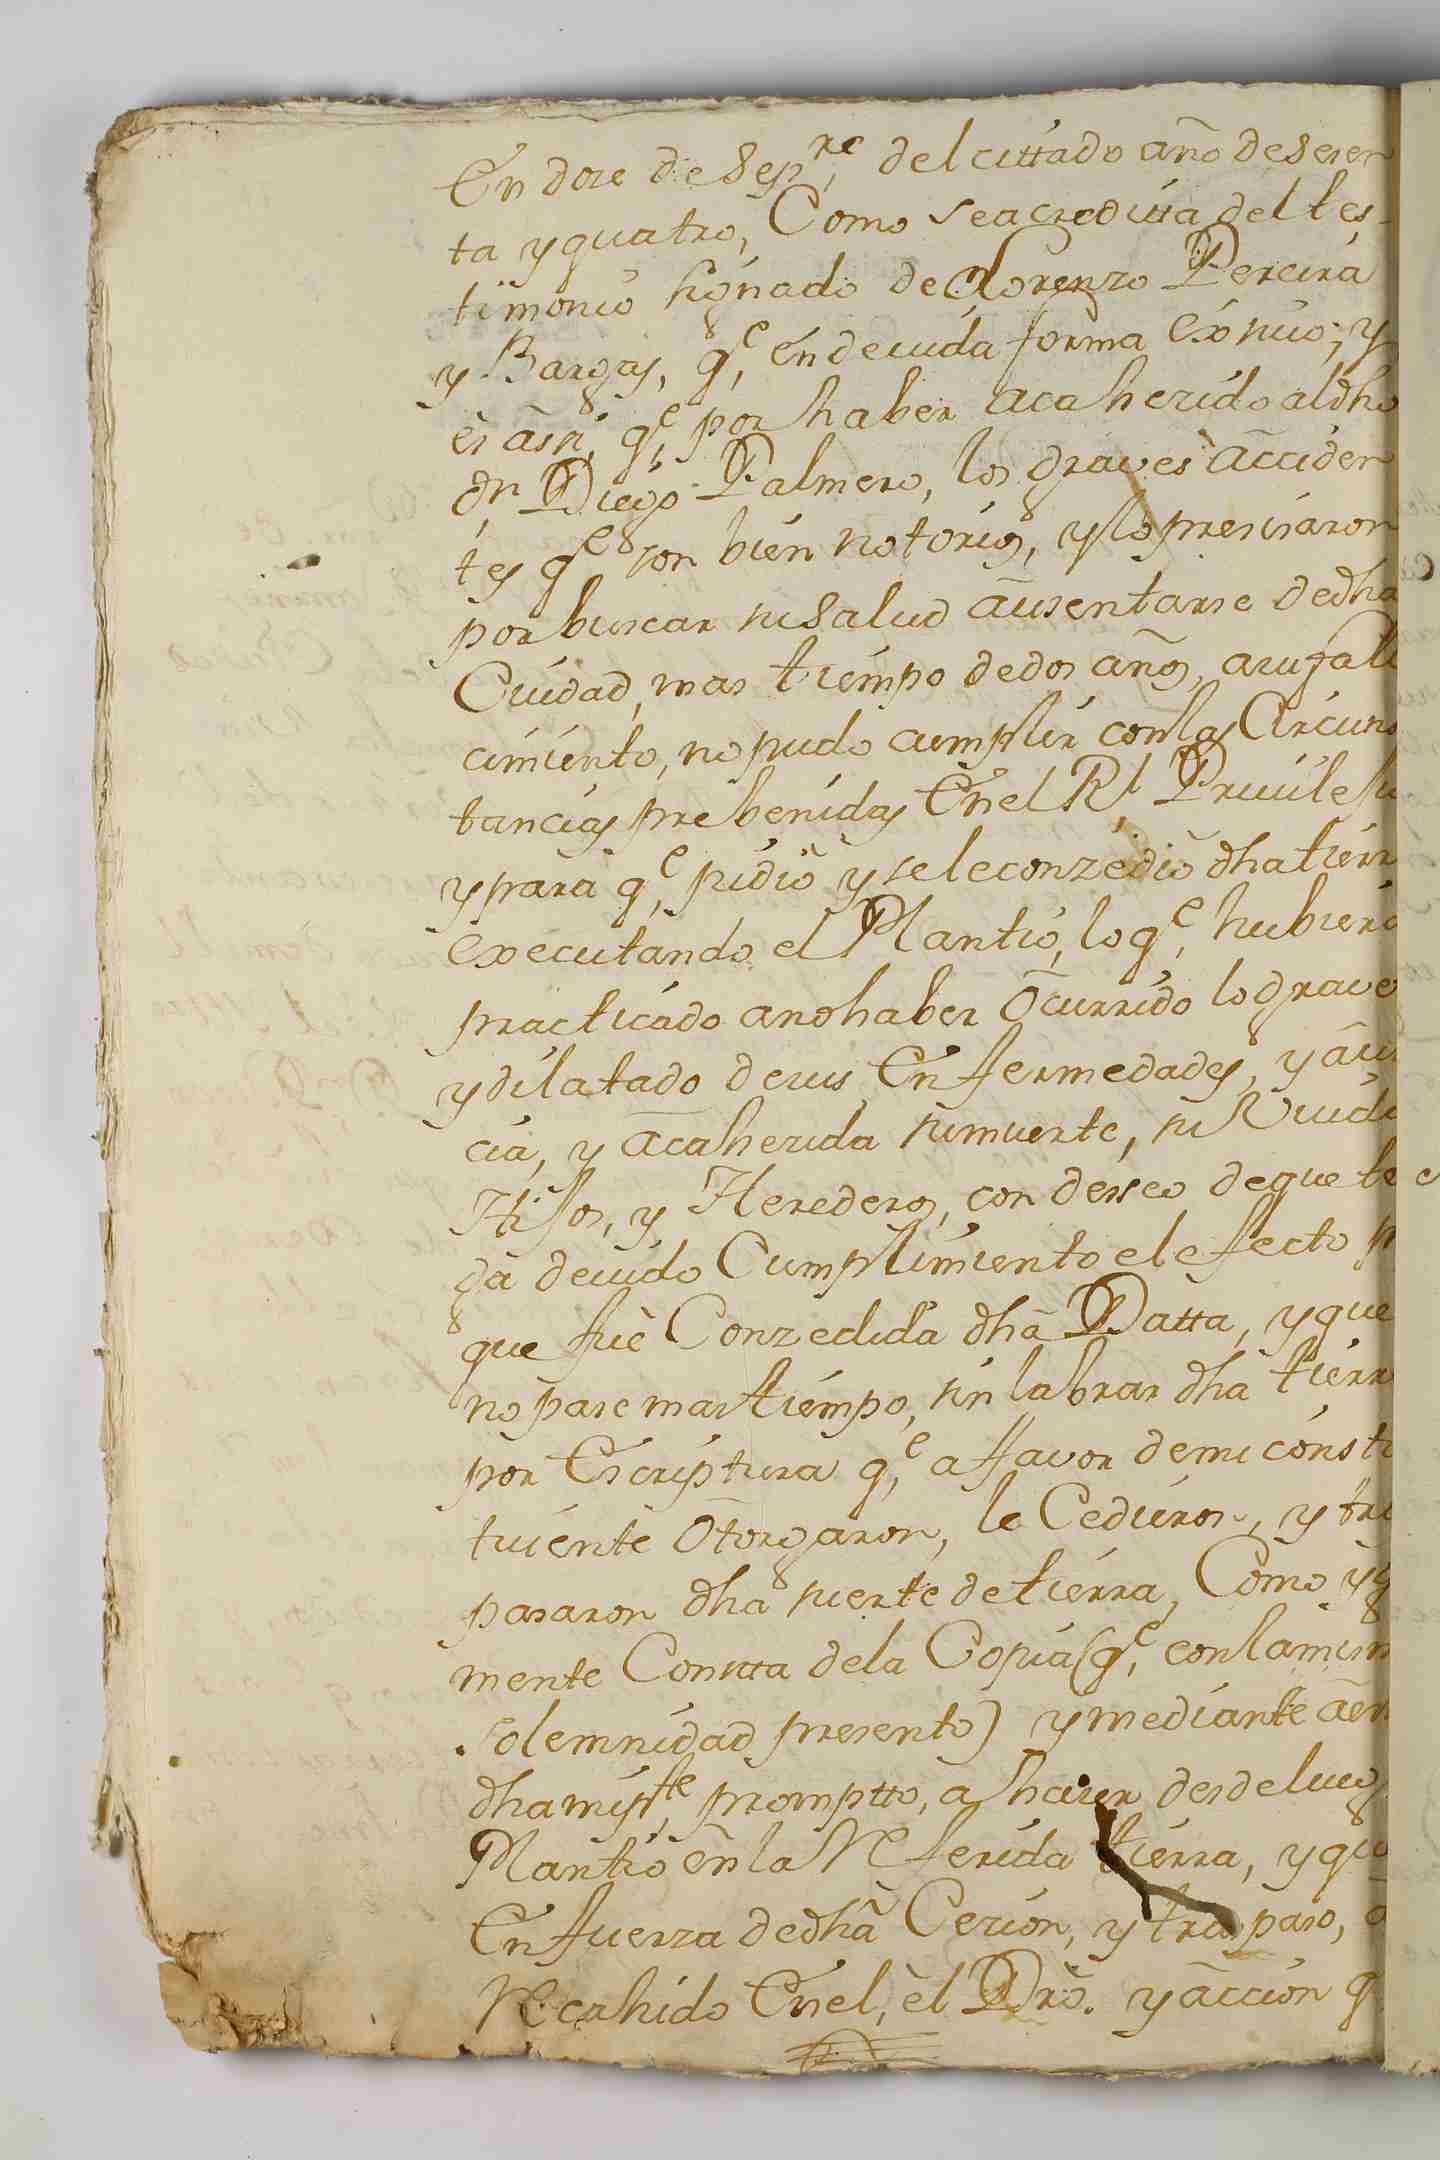 En dose de Sep.re del cittado año de Sesen
ta y quatro, Como se acreditta del tes-
timonio signado de Lorenzo Pereira
y Bargas, q.e en devida forma exsivo; y
es assi, q.e por haber acahezido al dho
dn Diego Palmero, los graves acciden
tes q.e son bien notorios, y lo presisaron
por buscar su Salud ausentarse de dha
Ciudad, mas tiempo de dos años, a su falle
cimiento, no pudo cumplir con las Circuns
tancias prebenidas En el Rl. Privilesi
y para q.e pidio y se le conzedio dha tierr
executando el Plantio, lo q.e hubiera
practicado a no haber ocurrido lo grave
y dilatado de sus Enfermedades, y ausen
cia, y acahezida su muerte, su Viuda
Hijos, y Herederos, con desseo de que te
ga devido Cumplimiento el efecto p
que fue Conzedida dha Datta, y que
no pase mas tiempo, sin labrar dha tierr
por Escriptura q.e a favor de mi consti
tuiente otorgaron, le Cedieron, y tra
pasaron dha suerte de tierra, Como yg
mente Consta de la Copia (q.e con la mism
solemnidad presento) y mediante a
dha mi p.te promptto, a haser desde luego
Plantio en la Referida tierra, y que
En fuerza de dha Cezion, y traspaso,
Recahido En el, el Dro. y accion q